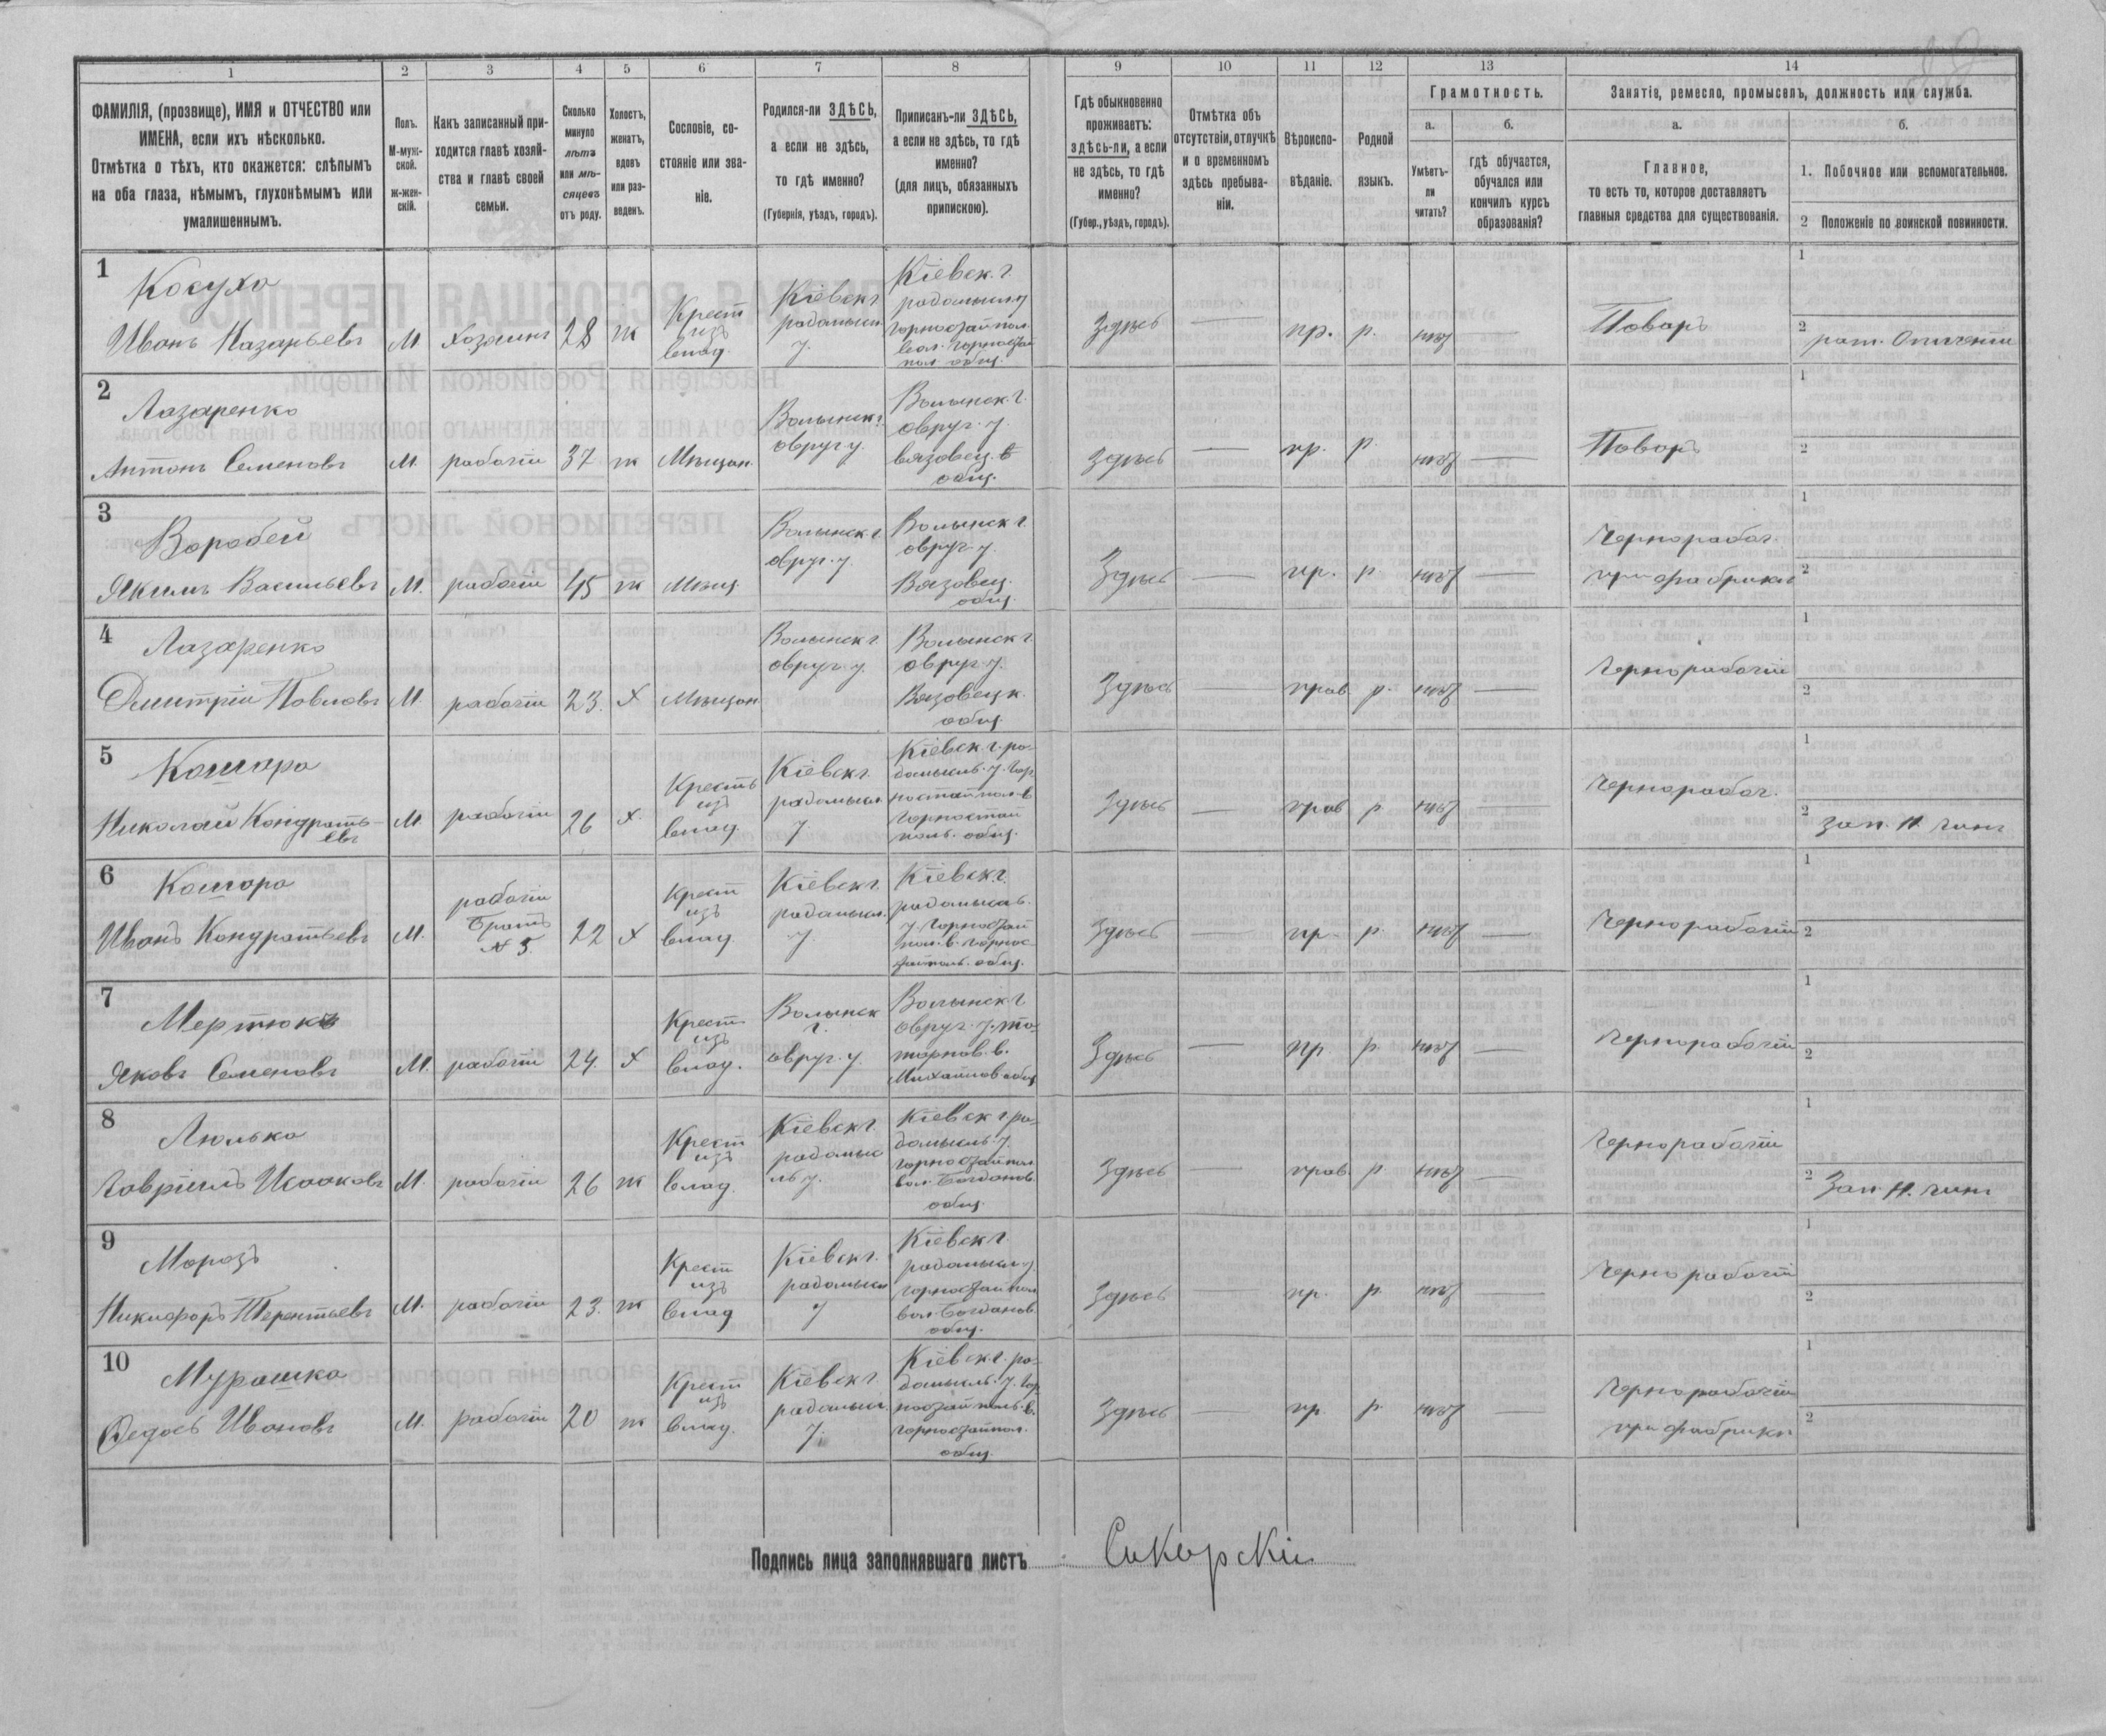 1 2 3 4 5 6 7 8 9 10 11 12 13 14
ФАМИЛІЯ, (прозвище), ИМЯ и ОТЧЕСТВО или
ИМЕНА, если ихъ нѣсколько.
Отмѣтка о тѣхъ, кто окажется: слѣпымъ
на оба глаза, нѣмымъ, глухонѣмымъ или
умалишеннымъ.
Полъ.
М-муж-
ской.
ж-жен-
скій.
Какъ записанный при-
ходится главѣ хозяй-
ства и главѣ своей
семьи.
Сколько
минуло
лѣтъ
или мѣ-
сяцевъ
отъ роду.
Холостъ,
женатъ,
вдовъ
или раз-
веденъ.
Сословіе, со-
стояніе или зва-
ніе.
Родился-ли ЗДѢСЬ,
а если не здѣсь,
то гдѣ именно?
(Губернія, уѣздъ, городъ).
Приписанъ-ли ЗДѢСЬ,
а если не здѣсь, то гдѣ
именно?
(для лицъ, обязанныхъ
припискою).
Гдѣ обыкновенно
проживаетъ:
здѣсь-ли, а если
не здѣсь, то гдѣ
именно?
(Губер., уѣздъ, городъ).
Отмѣтка объ
отсутствіи, отлучкѣ
и о временномъ
здѣсь пребыва-
ніи.
Вѣроиспо-
вѣданіе.
Родной
языкъ.
Грамотность.
а.
Умѣетъ-
ли
читать?
б.
гдѣ обучается,
обучался или
кончилъ курсъ
образованія?
Занятіе, ремесло, промыселъ, должность или служба.
а.
Главное,
то есть то, которое доставляетъ
главныя средства для существованія.
б.
1. Побочное или вспомогательное.
2 Положеніе по воинской повинности.
1
Косуха
Иванъ Назарьевъ
М
хозяинъ
28
ж
Крест
изъ
влад.
Кіевск г
радомысл
у.
Кіевск. г.
радомысл у
Горностайпол.
вол. Горностай
пол общ.
Здѣсь
—
пр.
р.
нѣт
—
Поваръ
1
2
рат. Ополченія
2
Лазаренко
Антонъ Семеновъ
М.
рабочій
37
ж
Мѣщан.
Волынск г.
овруч у.
Волынск. г.
овруч. у.
вязовец. в
общ.
здѣсь
—
пр.
р.
нѣт
—
Поваръ
1
2
3
Воробей
Якимъ Васильевъ
М.
рабочій
45
ж
Мѣщ.
Волынск г.
овруч. у
Волынск г.
овруч. у.
Вязовец.
общ.
Здѣсь
—
пр.
р
нѣт
—
Чернорабоч.
при фабрикѣ
1
2
4
Лазаренко
Дмитрій Павловъ
М.
рабочій
23.
х
Мѣщан
Волынск г
овруч. у.
Волынск г.
овруч. у.
Вязовецк.
общ.
Здѣсь
—
прав.
р.
нѣт
—
Чернорабочій
1
2
5
Кошара
Николай Кондрать-
евъ
М
рабочій
26
х.
Крестъ
изъ
влад.
Кіевск г.
радомысл.
у.
Кіевск. г. ра-
домысль. у. Гор
ностайпол. в
Горностай
поль. общ.
Здѣсь
—
прав
р
нѣт
—
Чернорабоч.
1
2
зап. н. чинъ
6
Кошара
Иванъ Кондратьевъ
М.
рабочій
братъ
№ 5.
22
х
Крест
изъ
влад.
Кіевск г.
радомысл.
у
Кіевск г.
радомысль.
у. Горностай
пол. в. Горнос
тайполь. общ.
Здѣсь
—
пр.
р.
нѣт
—
Чернорабочій
1
2
7
Мертюкъ
Яковъ Семеновъ
М.
рабочій
24.
х
Крест
изъ
влад.
Волынск
г.
овруч. у.
Волынск г
овруч. у.
Михайлов общ
Здѣсь
—
пр.
р.
нѣт
—
Чернорабочій
1
2
8
Люлька
Гавріилъ Исааковъ
М.
рабочій
26
ж
Крест
изъ
влад.
Кіевск г
радомыс
ль у.
Кіевск г. ра-
домысль. у.
Горностайпол
вол. Богданов.
общ.
Здѣсь
—
прав.
р.
нѣт
—
Чернорабочій
1
2
Зап. н. чинъ
9
Морозъ
Никифоръ Терентьевъ
М.
рабочій
23.
ж
Крест
изъ
влад
Кіевск г.
радомысл
у
Кіевск г.
радомысл у.
Горностайпол
вол. Богданов.
общ.
Здѣсь
—
пр.
р.
нѣт
—
Чернорабочій
1
2
10
Мурашка
Федось Ивановъ
М.
рабочій
20
ж
Крест
изъ
влад.
Кіевск г
радомысл.
у.
Кіевск. г. ра-
домысль. у. Гор
ностайполь. в.
Горностайпол.
общ.
Здѣсь
—
пр.
р.
нѣт
—
Чернорабочій
при фабрикѣ
1
2
Подпись лица заполнявшаго листъ
Сикорскій